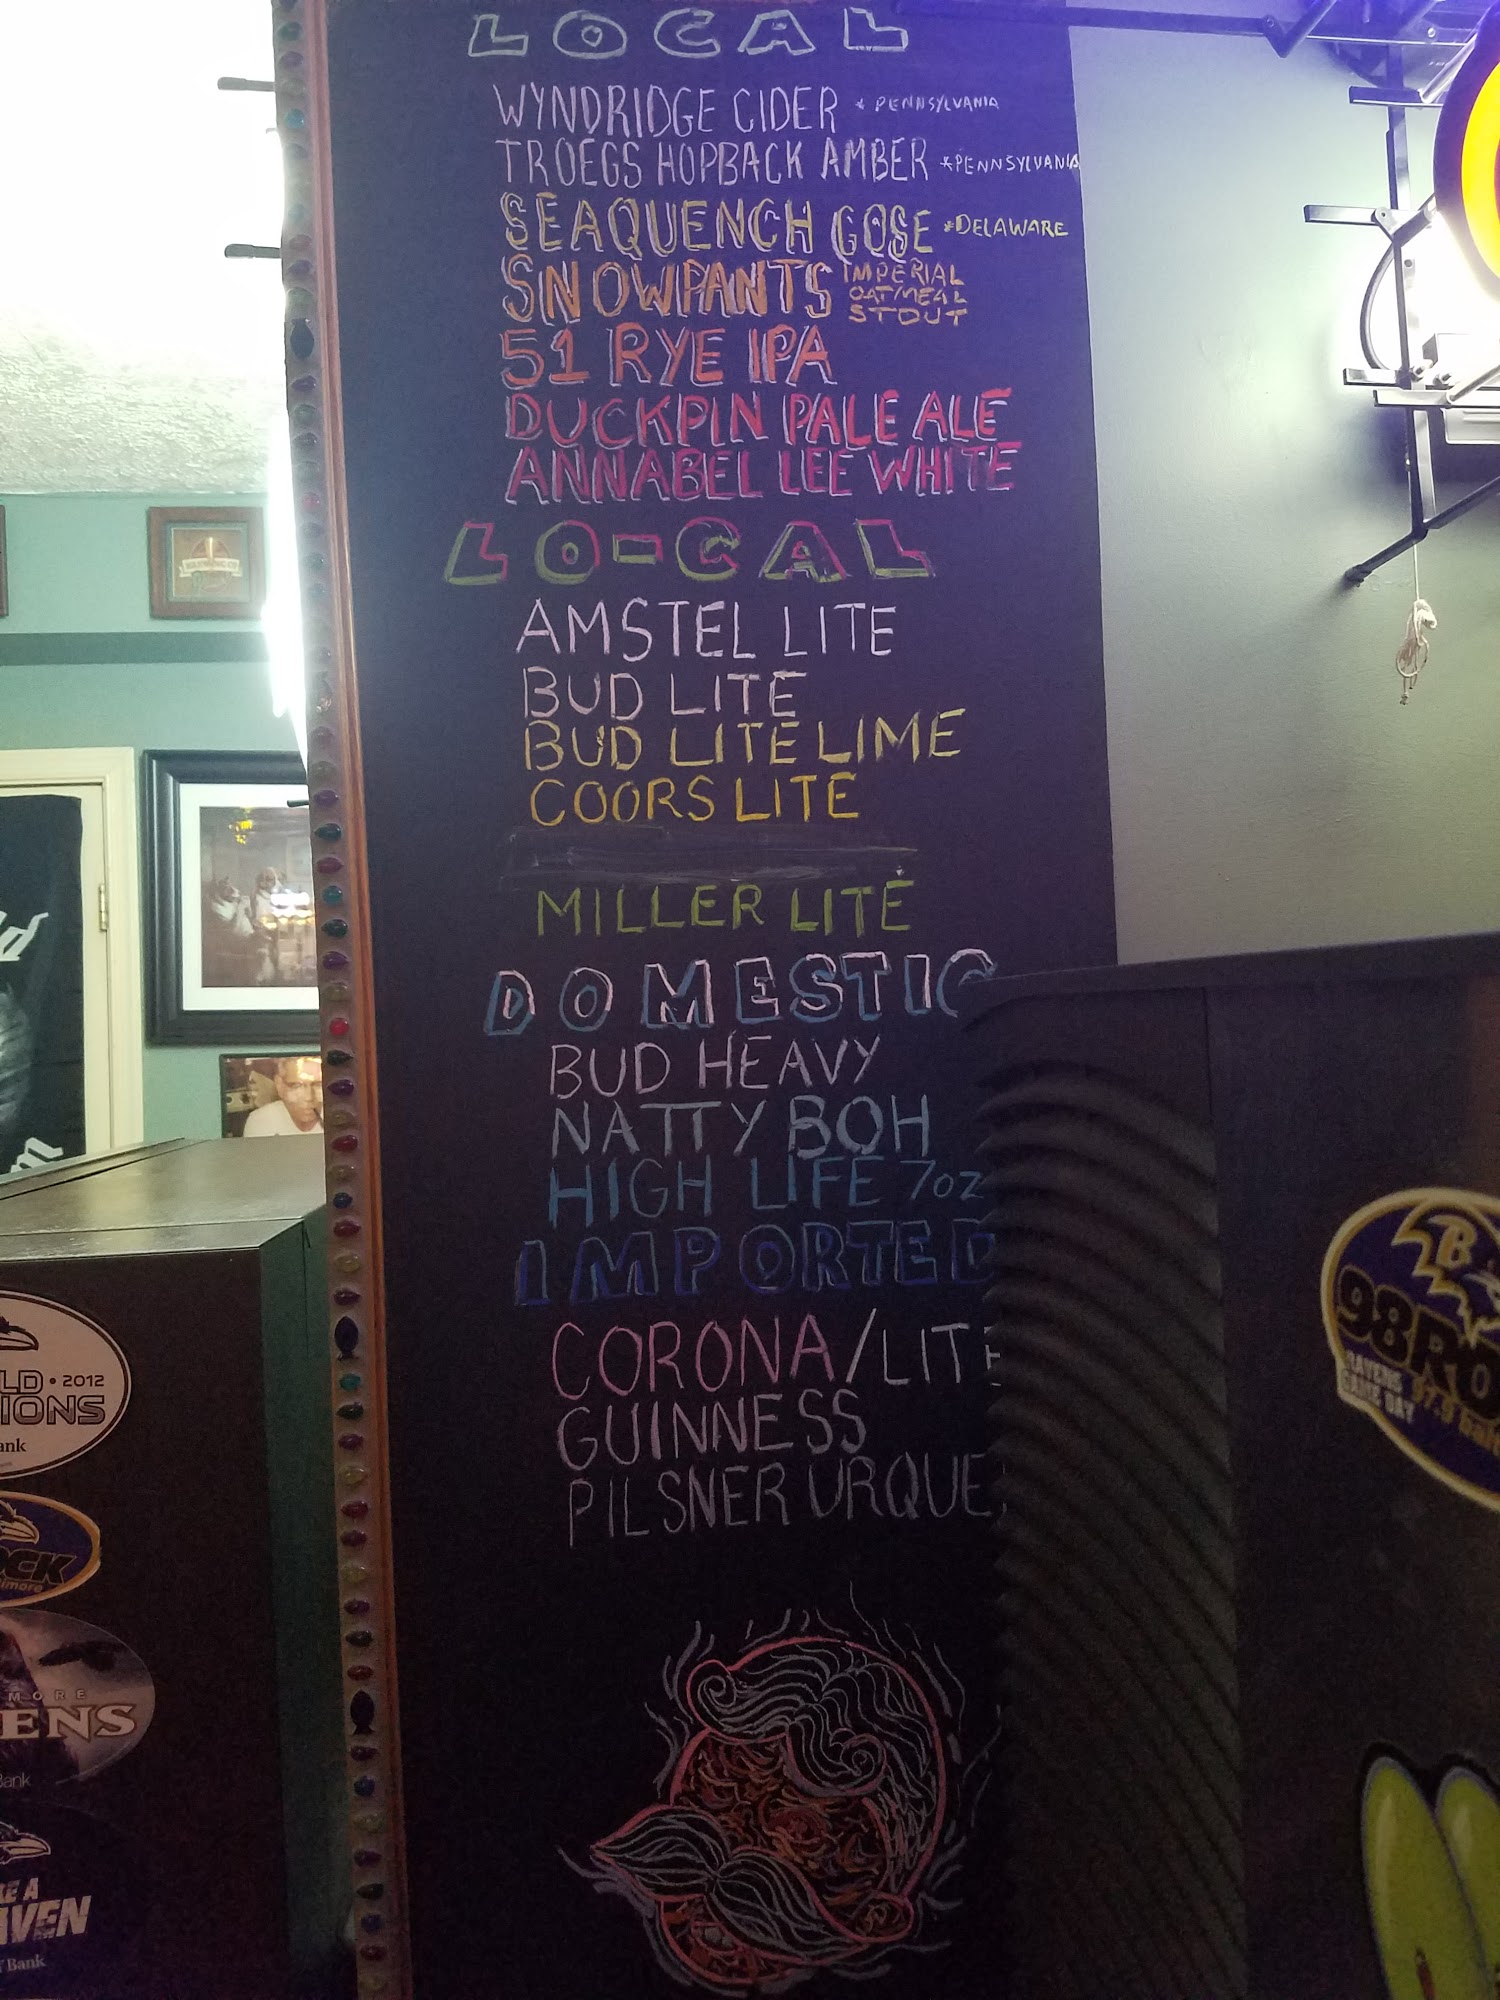 LOCAL
WYNDRIDGE CIDER * PENNSYLVANIA
TROEGS HOPBACK AMBER *PENNSYLVANIA
SEAQUENCH GOSE *DELAWARE
SNOWPANTS IMPERIAL
OATMEAL
STOUT
51 RYE IPA
DUCKPIN PALE ALE
ANNABEL LEE WHITE
LO-CAL
AMSTEL LITE
BUD LITE
BUD LITE LIME
COORS LITE
MILLER LITE
DOMESTIC
BUD HEAVY
NATTY BOH
HIGH LIFE 7oz
IMPORTED
CORONA/LITE
GUINNESS
PILSNER URQUE
LD • 2012
IONS
ank
OCK
imore
MORE
ENS
Bank
KE A
AVEN
Bank
B
98RO
RAVENS
GAME DAY
97.9